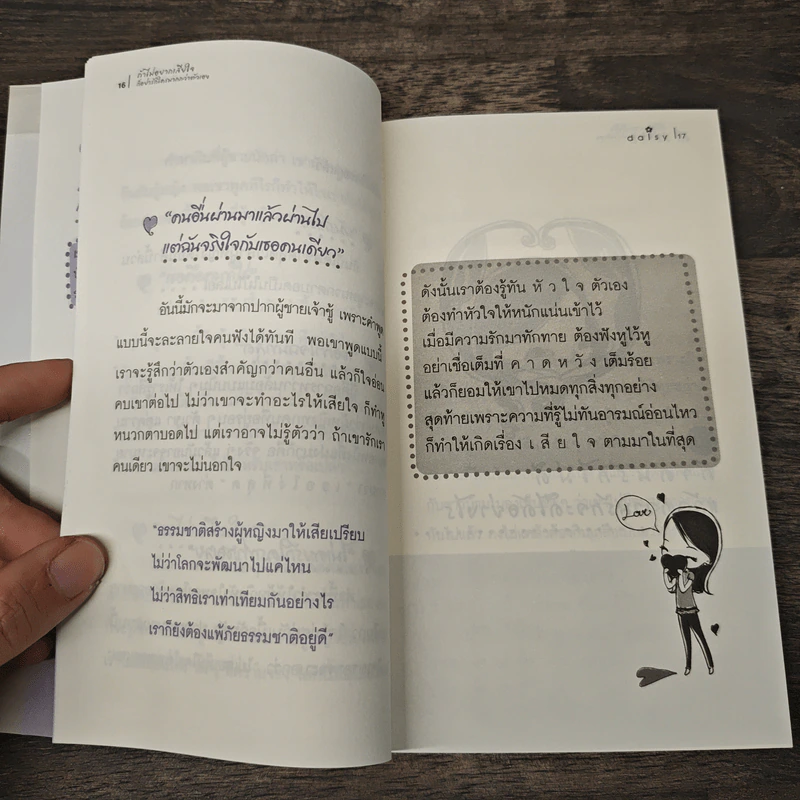 16 | ถ้าไม่อยากเสียใจ
"คนอื่นผ่านมาแล้วผ่านไป
แต่ฉันจริงใจกับเธอคนเดียว"
อันนี้มักจะมาจากปากผู้ชายเจ้าชู้ เพราะคำพูด
แบบนี้จะละลายใจคนฟังได้ทันที พอเขาพูดแบบนี้
เราจะรู้สึกว่าตัวเองสำคัญกว่าคนอื่น แล้วก็ใจอ่อน
คบเขาต่อไป ไม่ว่าเขาจะทำอะไรให้เสียใจ ก็ทำหู
หนวกตาบอดไป แต่เราอาจไม่รู้ตัวว่า ถ้าเขารักเรา
คนเดียว เขาจะไม่นอกใจ
"ธรรมชาติสร้างผู้หญิงมาให้เสียเปรียบ
ไม่ว่าโลกจะพัฒนาไปแค่ไหน
ไม่ว่าสิทธิเราเท่าเทียมกันอย่างไร
เราก็ยังต้องแพ้ภัยธรรมชาติอยู่ดี"
daisy | 17
ดังนั้นเราต้องรู้ทัน หั ว ใ จ ตัวเอง
ต้องทำหัวใจให้หนักแน่นเข้าไว้
เมื่อมีความรักมาทักทาย ต้องฟังหูไว้หู
อย่าเชื่อเต็มที่ ค า ด ห วั ง เต็มร้อย
แล้วก็ยอมให้เขาไปหมดทุกสิ่งทุกอย่าง
สุดท้ายเพราะความที่รู้ไม่ทันอารมณ์อ่อนไหว
ก็ทำให้เกิดเรื่อง เ สี ย ใ จ ตามมาในที่สุด
Love